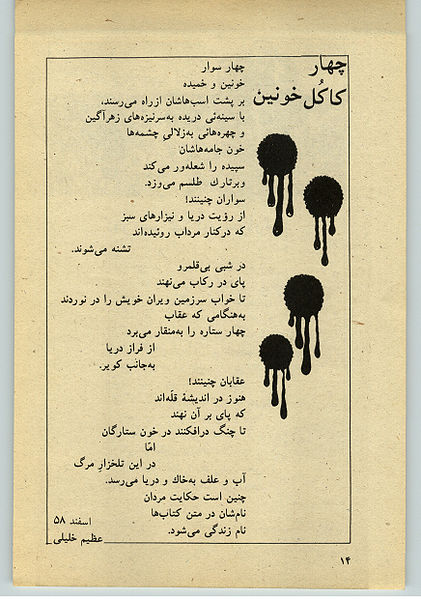 چهار
کاکُل خونین
چهار سوار
خونین و خمیده
بر پشت اسب‌هاشان ازراه می‌رسند،
با سینه‌ئی دریده به‌سرنیزه‌های زهرآگین
و چهره‌هائی به‌زلالیِ چشمه‌ها
خون جامه‌هاشان
سپیده را شعله‌ور می‌کند
وبرتارك طلسم می‌وزد.
سواران چنینند!
از رؤیت دریا و نیزارهای سبز
که درکنار مرداب روئیده‌اند
تشنه می‌شوند.
در شبی بی‌قلمرو
پای در رکاب می‌نهند
تا خواب سرزمین ویران خویش را در نوردند
به‌هنگامی که عقاب
چهار ستاره را به‌منقار می‌برد
از فراز دریا
به‌جانب کویر.
عقابان چنینند!
هنوز در اندیشهٔ قلّه‌اند
که پای بر آن نهند
تا چنگ درافکنند در خون ستارگان
امّا
در این تلخزارِ مرگ
آب و علف به‌خاك و دریا می‌رسد.
چنین است حکایت مردان
نام‌شان در متن کتاب‌ها
نام زندگی می‌شود.
اسفند ۵۸
عظیم خلیلی
۱۴